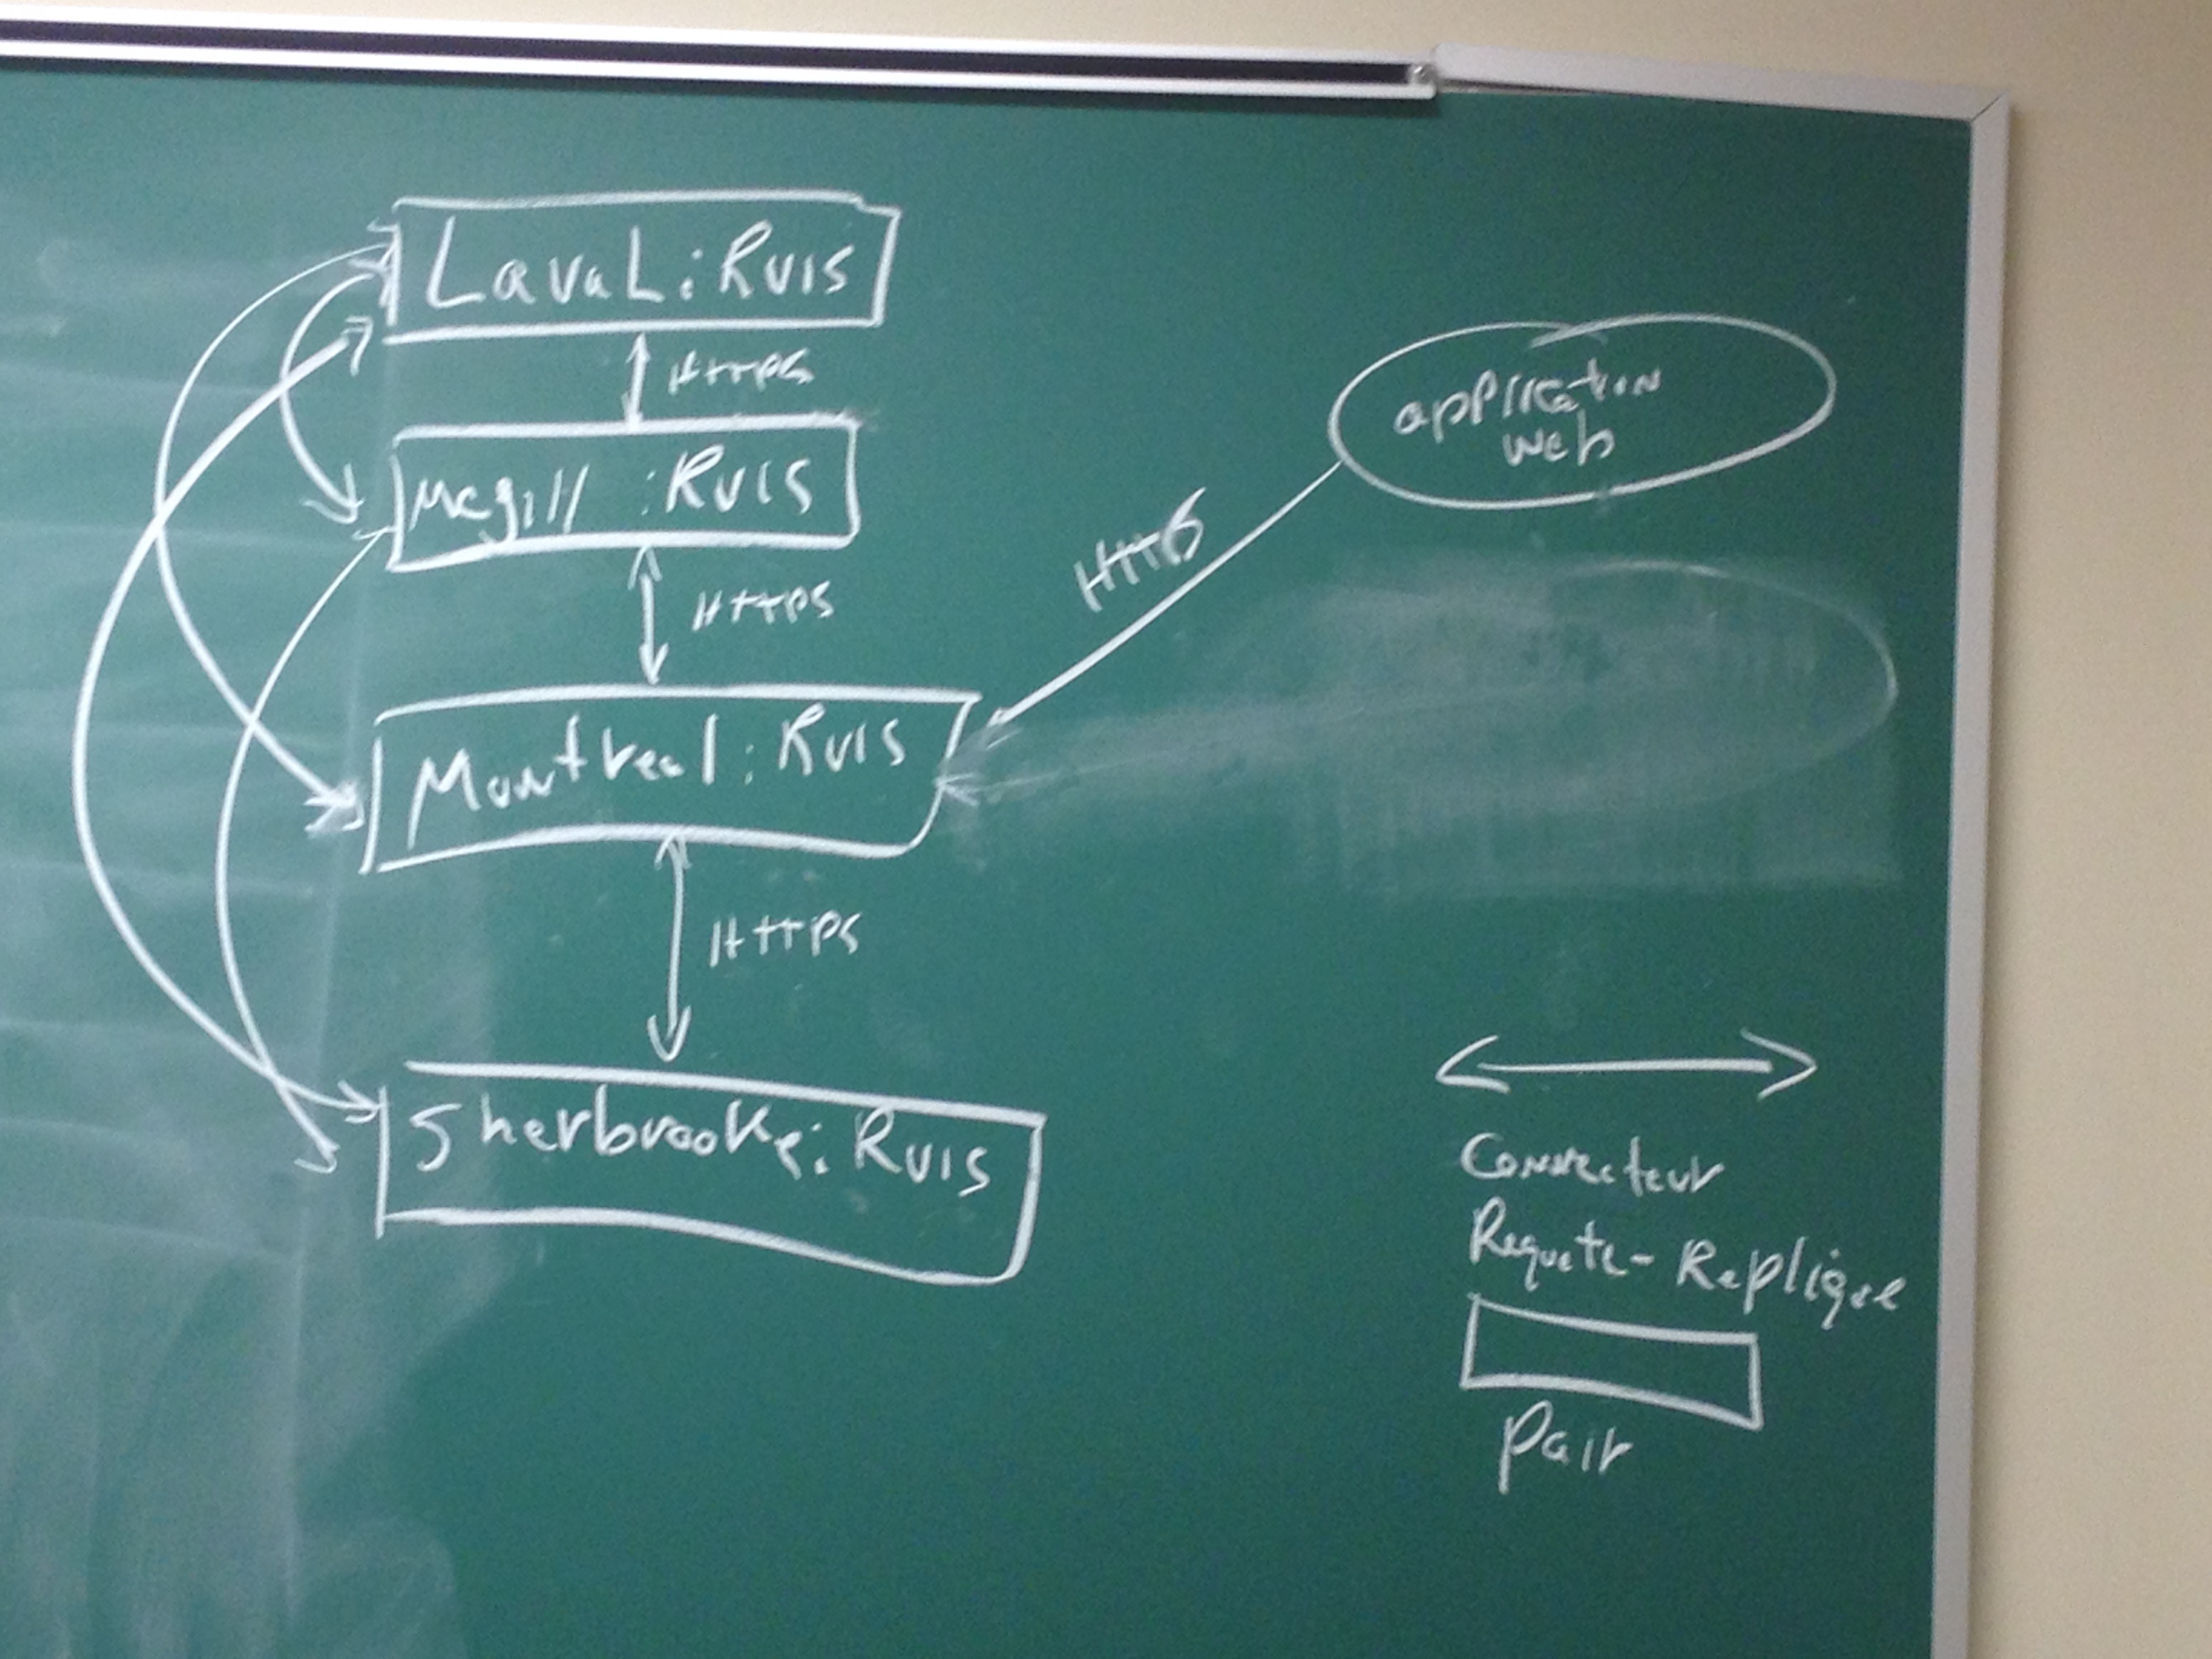 Laval:Rvis
HTTPS
Mcgill :Rvis
HTTPS
Montreal:Rvis
HTTPS
Sherbrooke:Rvis
application
web
Connecteur
Requete-Replique
Pair